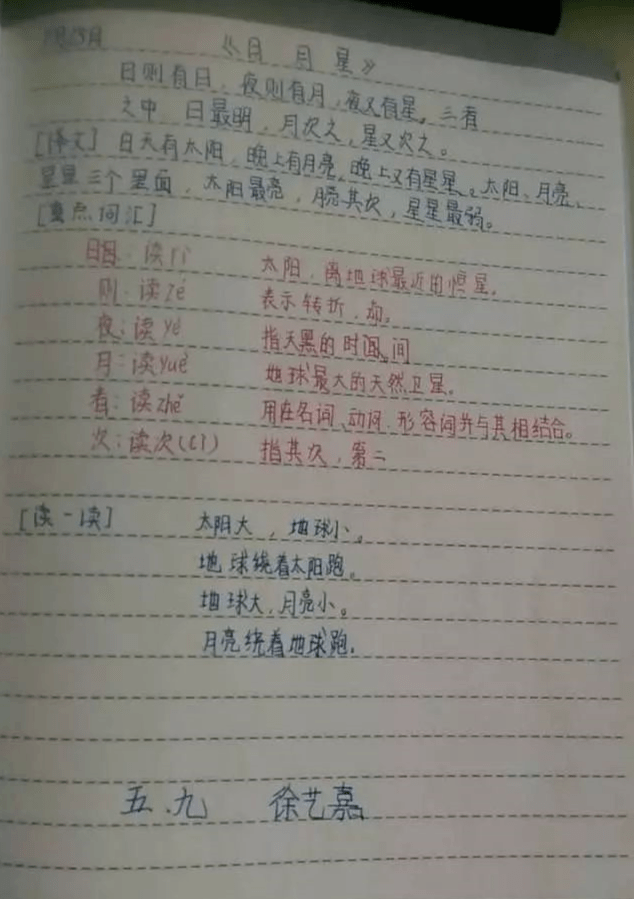 《日 月 星》
日则有日，夜则有月，夜又有星。三者
之中，日最明，月次之，星又次之。
[译文] 白天有太阳，晚上有月亮，晚上又有星星。太阳、月亮、
星星三个里面，太阳最亮，月亮其次，星星最弱。
[重点词汇]
日：读rì 太阳，离地球最近的恒星。
则：读zé 表示转折，却。
夜：读yè 指天黑的时间
月：读yuè 地球最大的天然卫星。
者：读zhě 用在名词、动词、形容词并与其相结合。
次：读次(cì) 指其次，第二
[读一读] 太阳大，地球小。
地球绕着太阳跑。
地球大，月亮小。
月亮绕着地球跑。
五.九 徐艺嘉